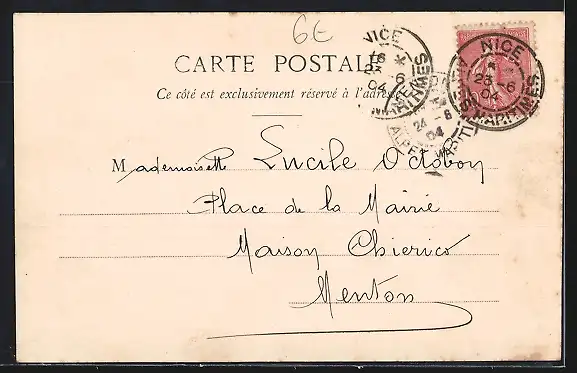 6E
CARTE POSTALE
Ce côté est exclusivement réservé à l'adresse
Mademoiselle Lucile Octobon
Place de la Mairie
Maison Chierico
Menton
NICE
23 - 6
04
ALPES MARITIMES
NICE
04
24 - 6
04